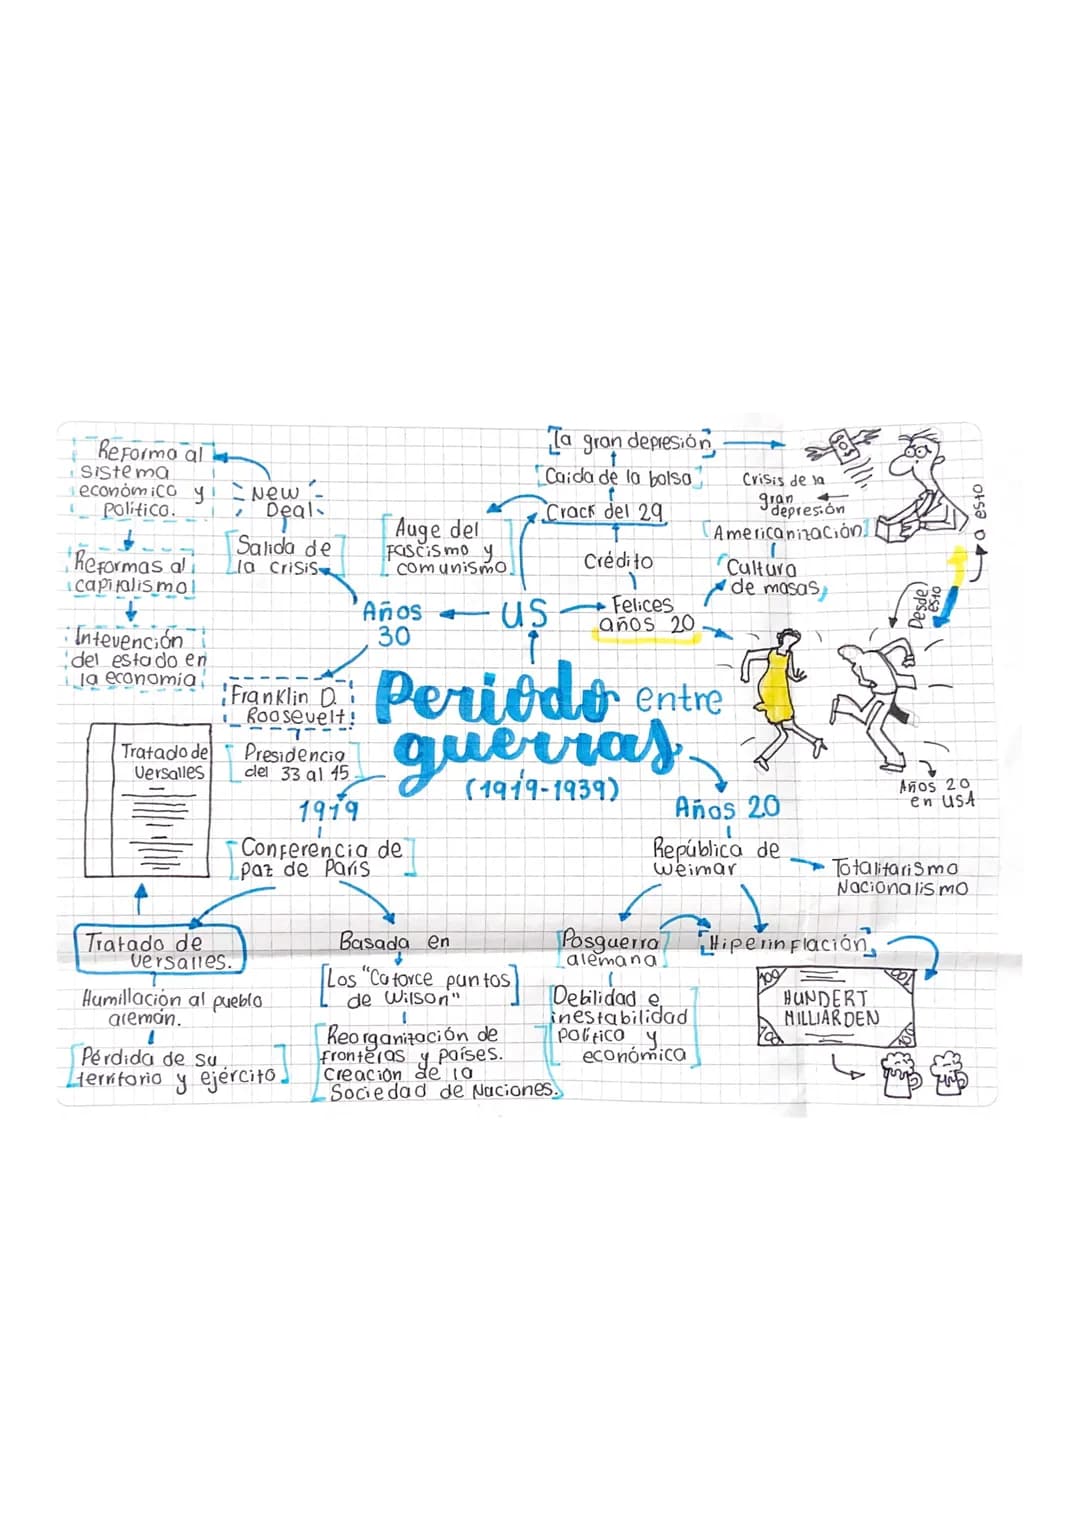 Reforma al
sistema
económico y
político.
New
Deal
Salida de
la crisis
Reformas al
capitalismo
Intevención
del estado en
la economía
Auge del
Fascismo y
comunismo
La gran depresión
Caida de la bolsa
Crack del 29
Crédito
Felices
años 20
US
Años
30
Crisis de la
gran
depresión
Americanización
Cultura
de masas
Desde
esto
a esto
Años 20
en USA
Franklin D.
Roosevelt
Presidencia
del 33 al 45
Periodo entre
guerras
(1919-1939)
1919
Conferencia de
paz de París
Tratado de
Versalles
Tratado de
Versalles.
Humillación al pueblo
alemán.
Pérdida de su
territorio y ejército
Basada en
Los "Catorce puntos
de Wilson"
Reorganización de
fronteras y países.
Creación de la
Sociedad de Naciones.
Años 20
República de
Weimar
Totalitarismo
Nacionalismo
Posguerra
alemana
Debilidad e
inestabilidad
política y
económica
Hiperinflación
100
100
HUNDERT
MILLIARDEN
100
100